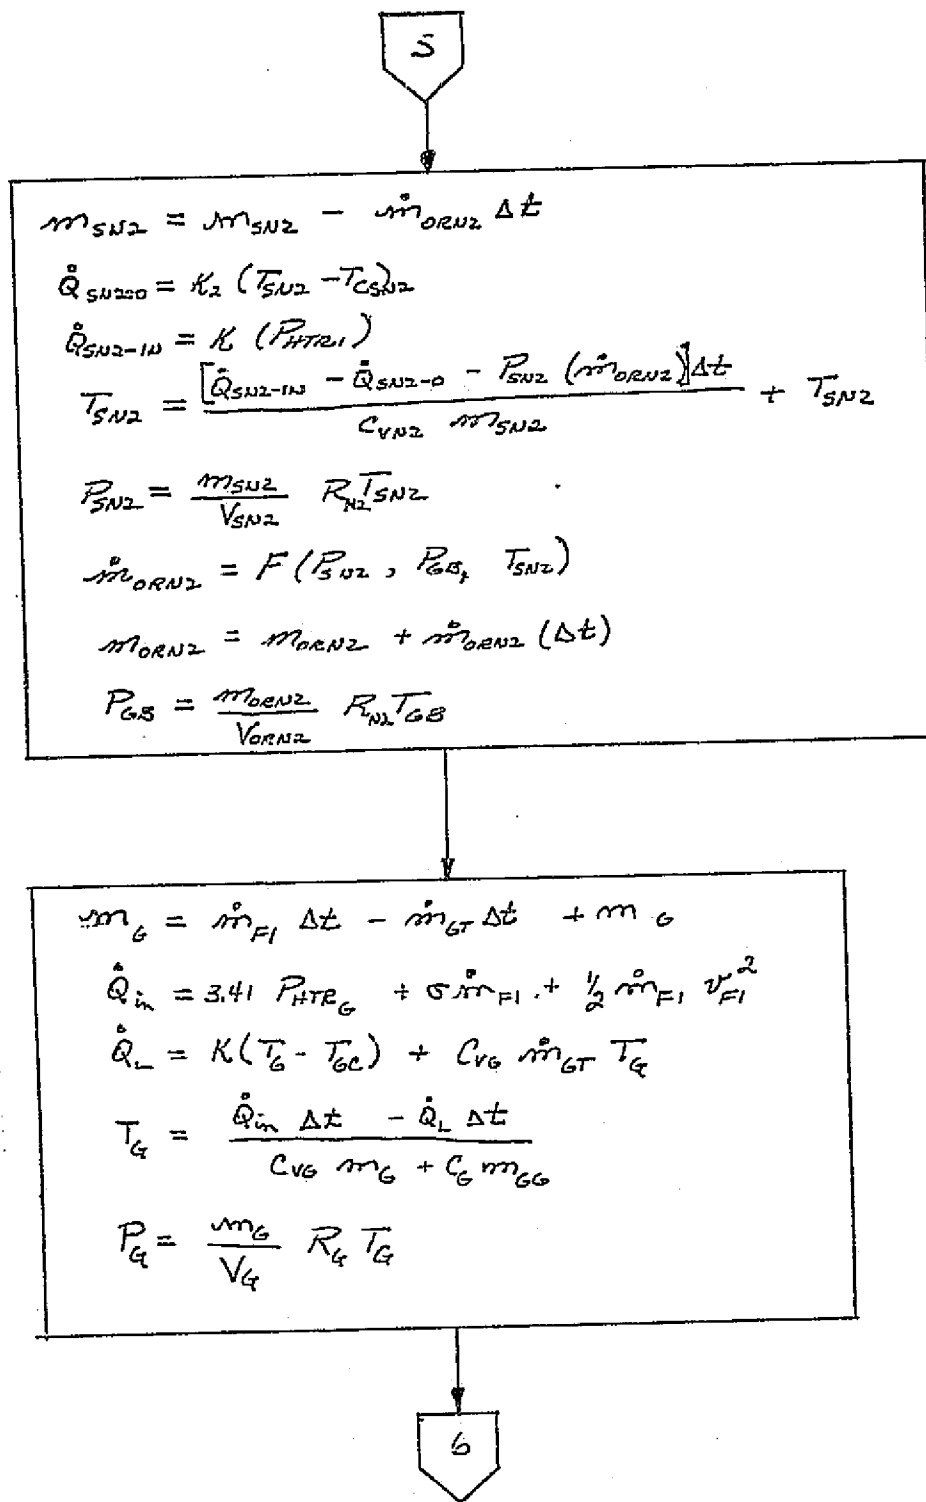 5
m_SN2 = m_SN2 - ṁ_ORN2 Δt
Q̇_SN2-O = K_2 (T_SN2 - T_CSN2)
Q̇_SN2-IN = K (P_HTR1)
T_SN2 = [Q̇_SN2-IN - Q̇_SN2-O - P_SN2 (ṁ_ORN2)]Δt / C_VN2 m_SN2 + T_SN2
P_SN2 = m_SN2 / V_SN2 R_N2 T_SN2
ṁ_ORN2 = F(P_SN2, P_GB, T_SN2)
m_ORN2 = m_ORN2 + ṁ_ORN2 (Δt)
P_GB = m_ORN2 / V_ORN2 R_N2 T_GB
m_G = ṁ_F1 Δt - ṁ_GT Δt + m_G
Q̇_in = 3.41 P_HTR_G + σ ṁ_F1 + 1/2 ṁ_F1 v_F1^2
Q̇_L = K(T_G - T_GC) + C_VG ṁ_GT T_G
T_G = Q̇_in Δt - Q̇_L Δt / C_VG m_G + C_G m_GG
P_G = m_G / V_G R_G T_G
6